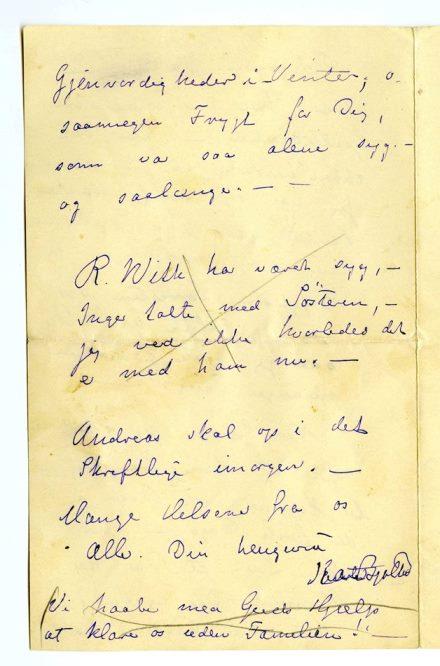 Gjenvordigheder i Vinter; o-
saamegen Frygt for Dig,
som var saa alene syg. -
og saalænge. — —
R. Willk har været syg, —
Inger talte med Söstern, —
jeg ved ikke hvorledes det
er med ham nu. —
Andreas skal op i det
Skriftlige imorgen. —
Mange Helsener fra os
Alle. Din hengivne
Vi haabe med Guds Hjælp
at klare os uden Familien!! —